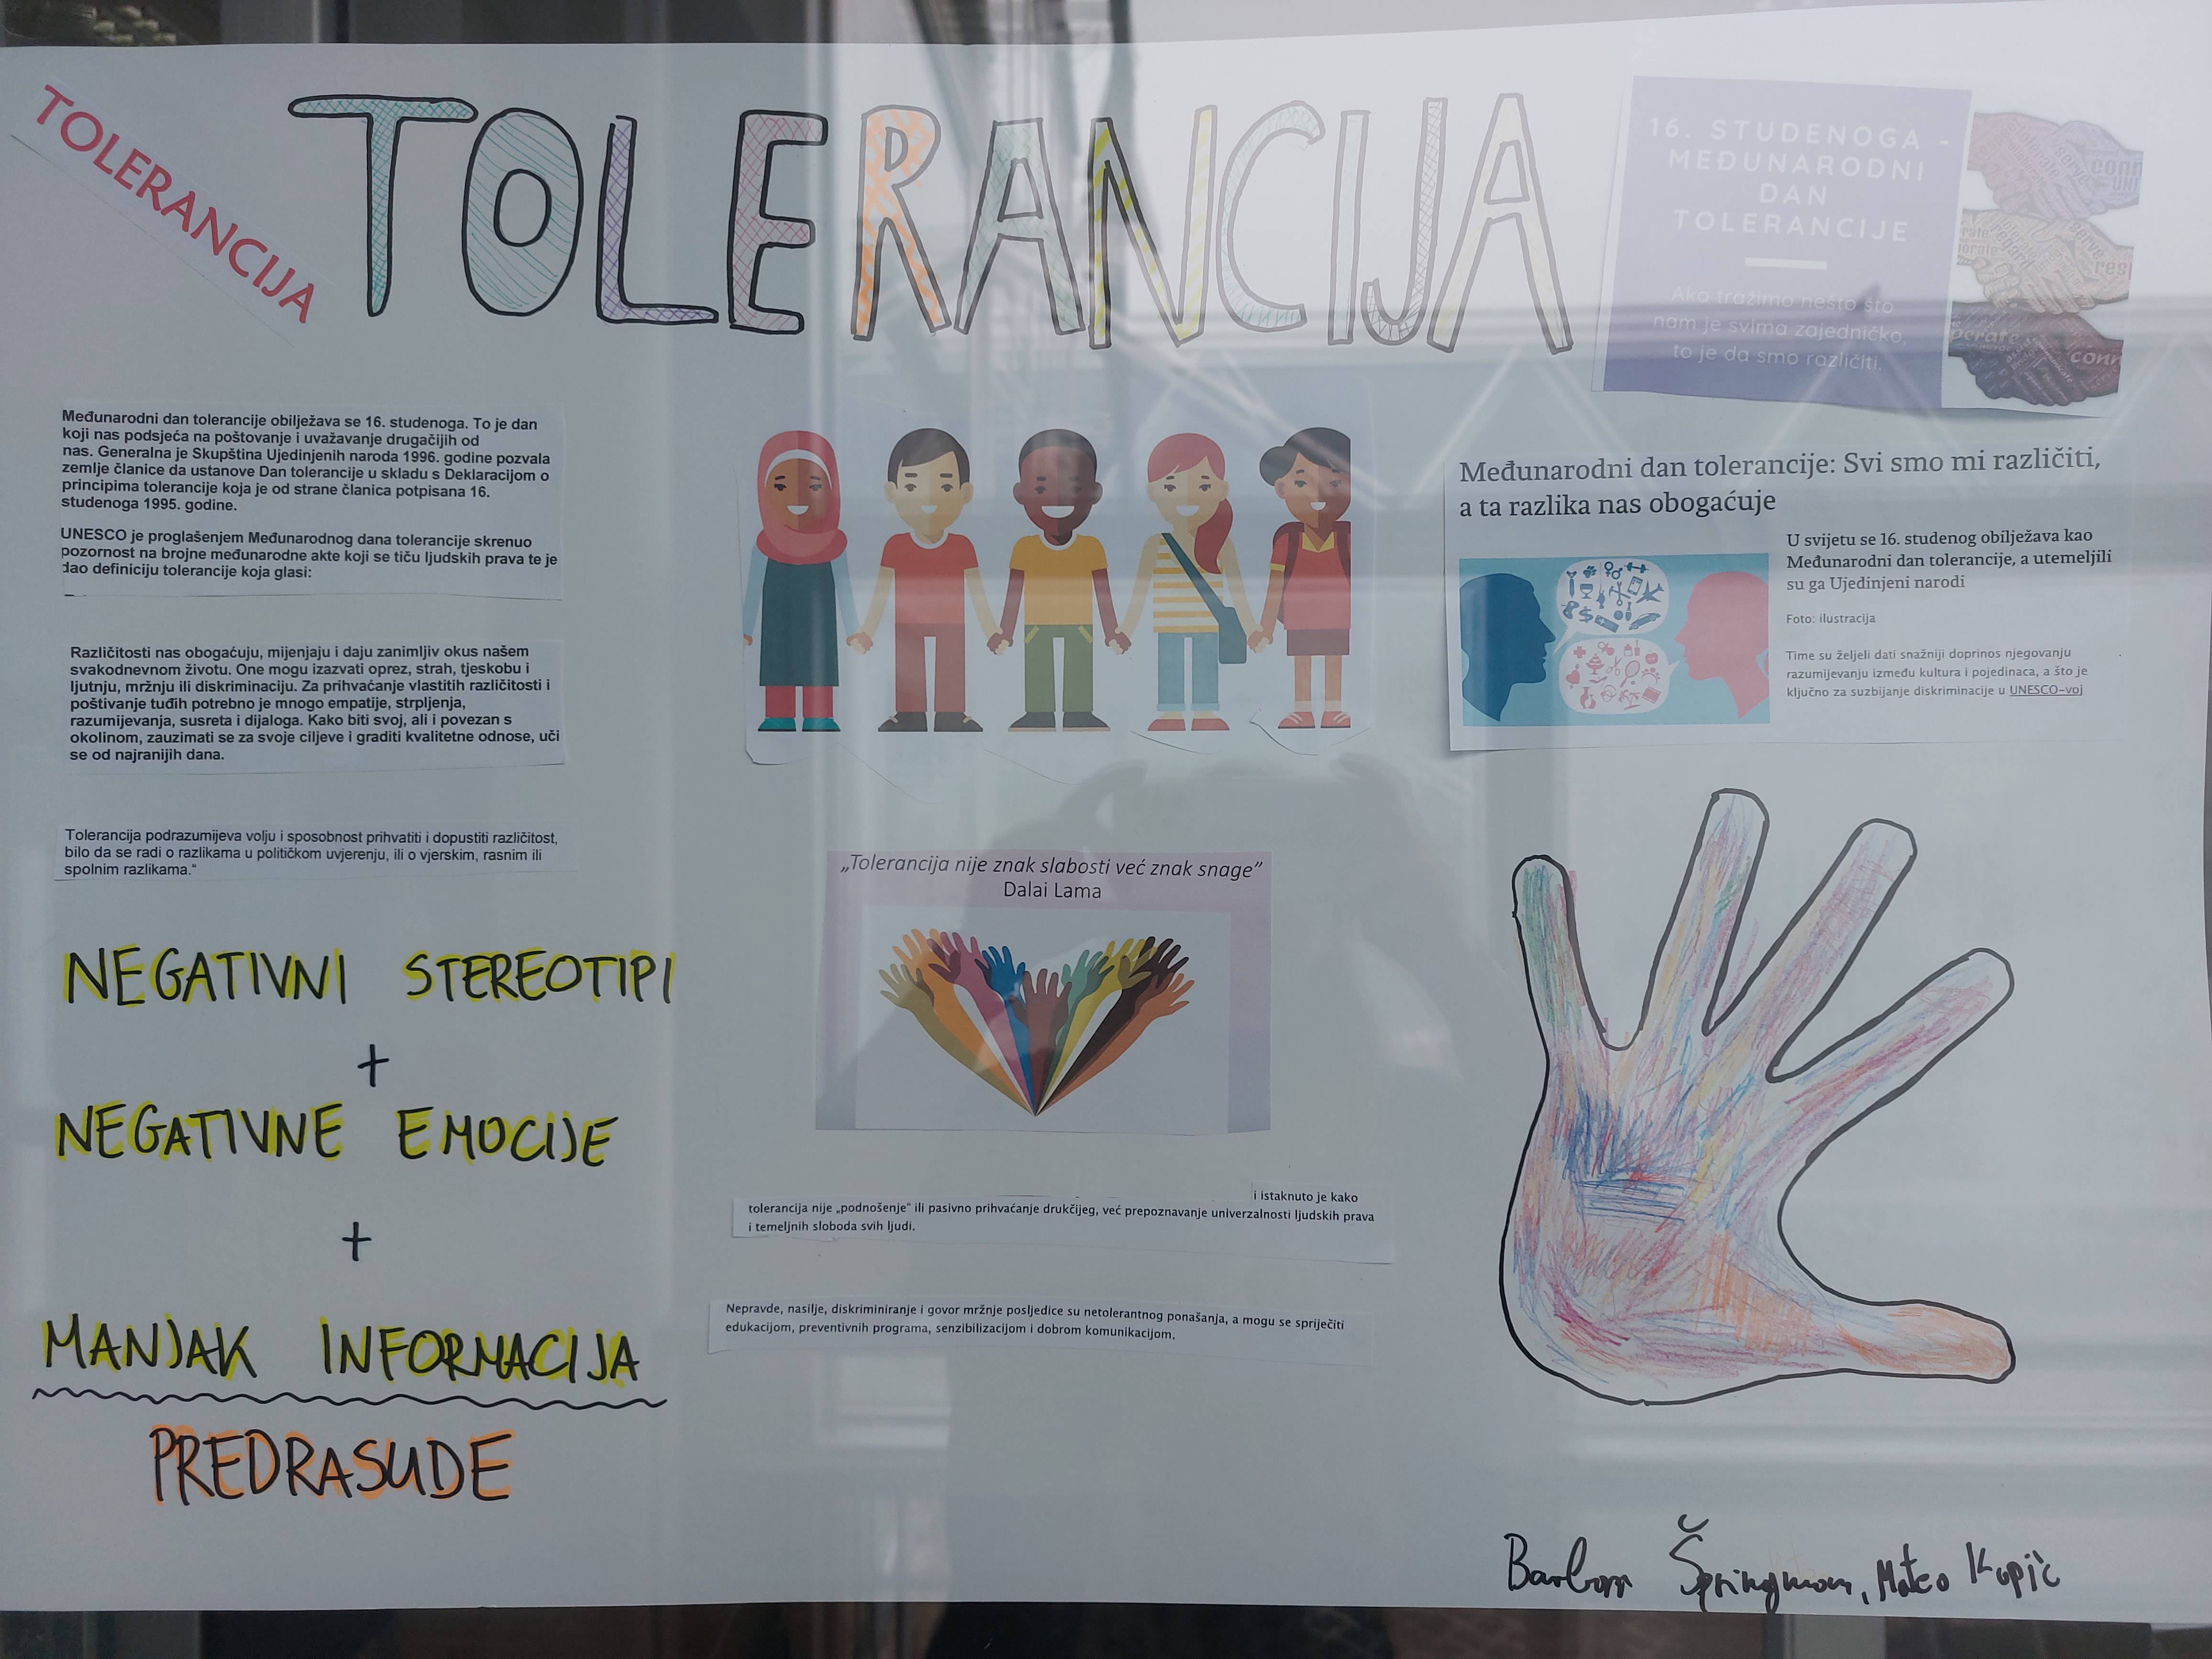 TOLERANCIJA
TOLERANCIJA
16. STUDENOGA -
MEĐUNARODNI
DAN
TOLERANCIJE
Ako tražimo nešto što
nam je svima zajedničko,
to je da smo različiti.
Međunarodni dan tolerancije obilježava se 16. studenoga. To je dan
koji nas podsjeća na poštovanje i uvažavanje drugačijih od
nas. Generalna je Skupština Ujedinjenih naroda 1996. godine pozvala
zemlje članice da ustanove Dan tolerancije u skladu s Deklaracijom o
principima tolerancije koja je od strane članica potpisana 16.
studenoga 1995. godine.
UNESCO je proglašenjem Međunarodnog dana tolerancije skrenuo
pozornost na brojne međunarodne akte koji se tiču ljudskih prava te je
dao definiciju tolerancije koja glasi:
Različitosti nas obogaćuju, mijenjaju i daju zanimljiv okus našem
svakodnevnom životu. One mogu izazvati oprez, strah, tjeskobu i
ljutnju, mržnju ili diskriminaciju. Za prihvaćanje vlastitih različitosti i
poštivanje tuđih potrebno je mnogo empatije, strpljenja,
razumijevanja, susreta i dijaloga. Kako biti svoj, ali i povezan s
okolinom, zauzimati se za svoje ciljeve i graditi kvalitetne odnose, uči
se od najranijih dana.
Tolerancija podrazumijeva volju i sposobnost prihvatiti i dopustiti različitost,
bilo da se radi o razlikama u političkom uvjerenju, ili o vjerskim, rasnim ili
spolnim razlikama.“
NEGATIVNI STEREOTIPI
+
NEGATIVNE EMOCIJE
+
MANJAK INFORMACIJA
PREDRASUDE
„Tolerancija nije znak slabosti već znak snage”
Dalai Lama
i istaknuto je kako
tolerancija nije „podnošenje“ ili pasivno prihvaćanje drukčijeg, već prepoznavanje univerzalnosti ljudskih prava
i temeljnih sloboda svih ljudi.
Nepravde, nasilje, diskriminiranje i govor mržnje posljedice su netolerantnog ponašanja, a mogu se spriječiti
edukacijom, preventivnih programa, senzibilizacijom i dobrom komunikacijom.
Međunarodni dan tolerancije: Svi smo mi različiti,
a ta razlika nas obogaćuje
U svijetu se 16. studenog obilježava kao
Međunarodni dan tolerancije, a utemeljili
su ga Ujedinjeni narodi
Foto: ilustracija
Time su željeli dati snažniji doprinos njegovanju
razumijevanju između kultura i pojedinaca, a što je
ključno za suzbijanje diskriminacije u UNESCO-voj
Mateo Kupič